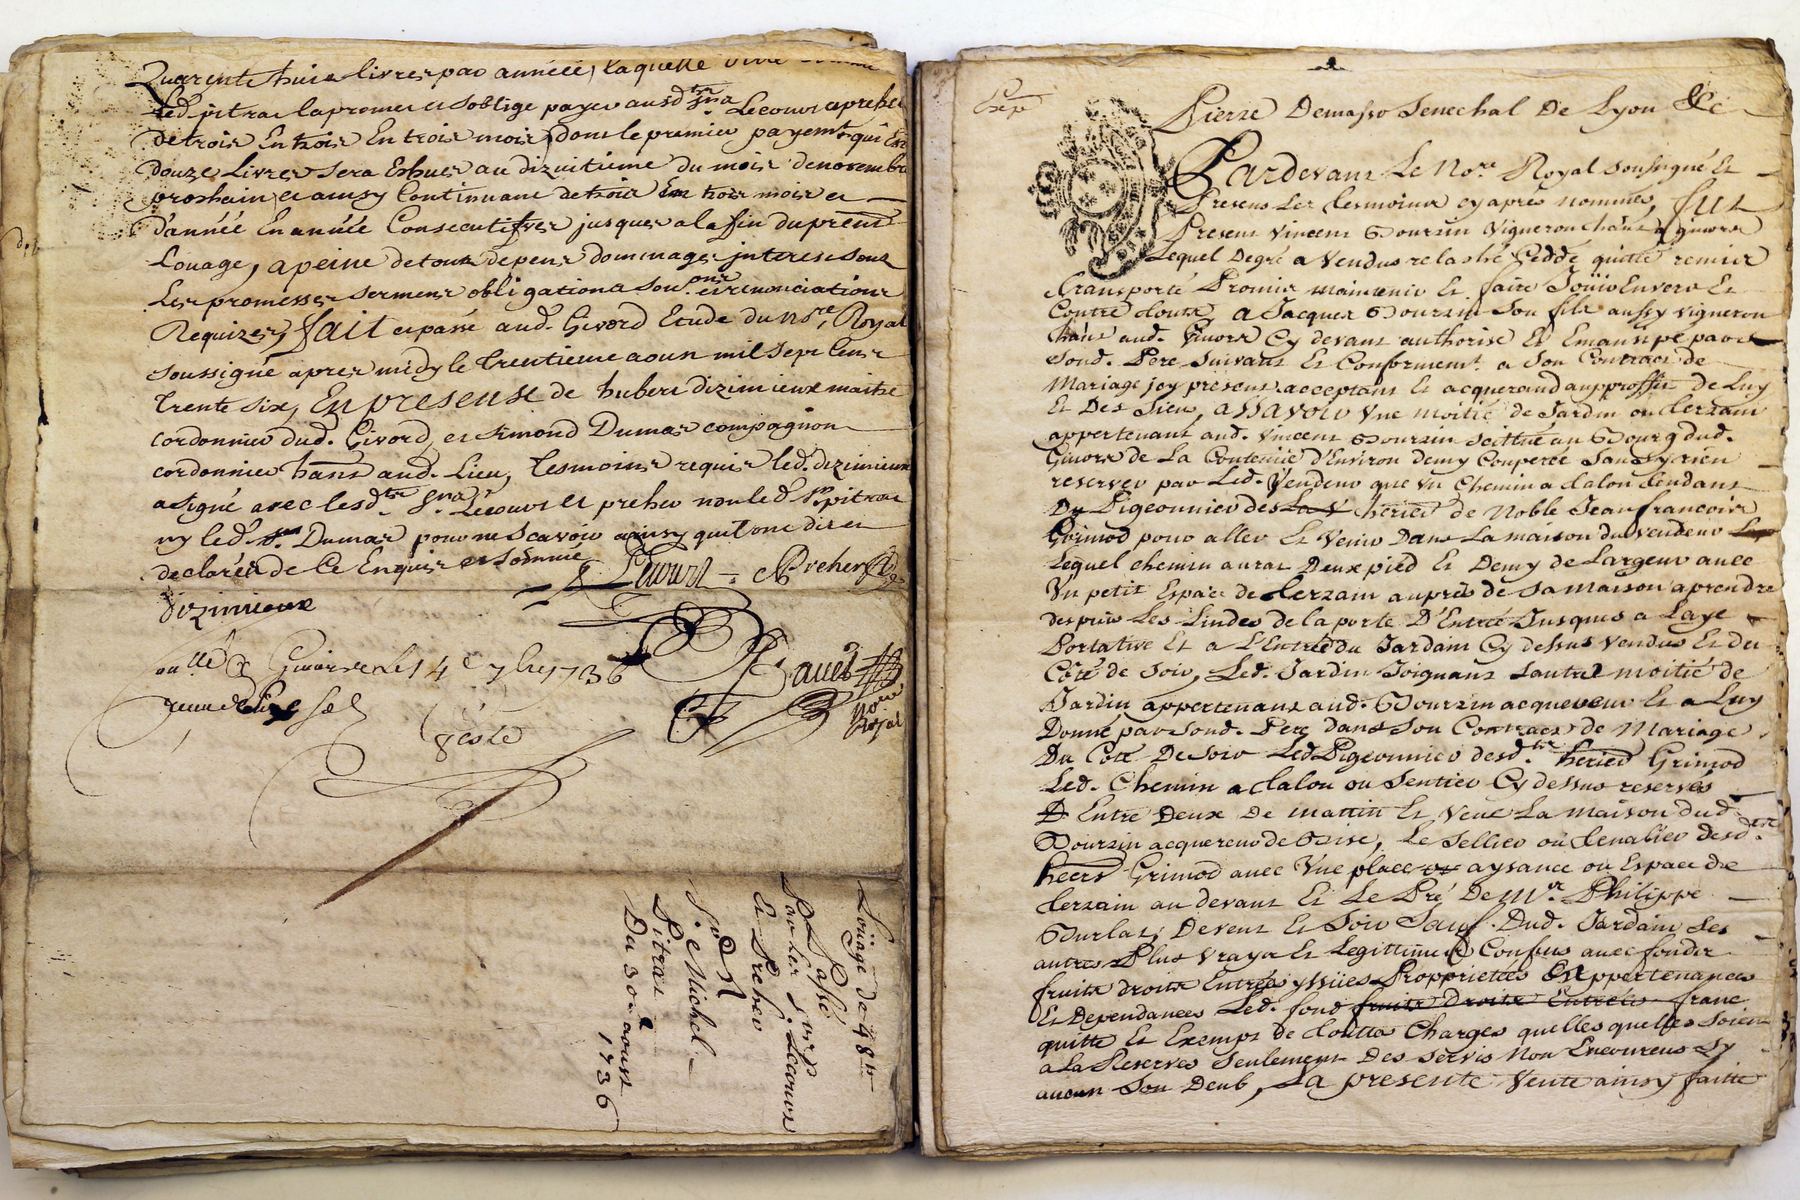 Quarente huict livres par année, laquelle
led pitrat la promet et s'oblige payer ausd. Lecourt et preher
de trois En trois En trois mois, dont le premier payemt qui Est
douze Livres sera Eshuer au dizuitieme du mois de novembre
prochain, et ainsy Continuant de trois En trois mois et
d'année En année Consecutifves jusques a la ffin du present
Louage, a peine de tous depens dommages jnterest sous
Les promesses serment obligations soumons et renonciations
Requizes, fait et passé aud. Givord Etude du nore Royal
soussigné apres midy le trentieme aoust mil sept Cent
trente six, En presense de hubert dizimieux maitre
cordonnier dud. Givord, et simond Dumas compagnon
cordonnier hant aud. Lieu, tesmoins requis led. dizimieux
a signé avec lesd. Srs Lecourt et preher non led. Sr pitrat
ny led. Dumas pour ne scavoir ainsy qu'il ont dit et
declaréz de Ce Enquis et sommé
Lecourt = Preher
dizimieux
Givors le 14e 7bre 1736
no. Royal
Loüage de 48ll
Passé
par les srs Lecourt
Et Preher
à
S.r Michel
Pitrat
Du 30e aoust
1736
Exp
Pierre Demasso Senechal De Lyon &c
Pardevant Le Nore Royal soussigné Et
Presens Les tesmoins cy aprés nommés, fut
Present Vincent Boursin Vigneron hant a givors
Lequel Degré a Vendus relaché Ceddé quitté remis
transporté Promis maintenir Et faire Joüir Envers Et
Contre touts, A Jacques Boursin Son fils aussy vigneron
hant aud. Givors Cy devant authorisé Et Emansipé par
sond. Pere Suivant Et Conforment a Son Contract de
Mariage jcy present acceptant Et acquerand au proffit de Luy
Et Des Siens, assavoir Une moitié de Jardin ou terrain
appertenant aud. Vincent Boursin scittué au Bourg dud.
Givors de La Contenüe d'Environ demy Couperée sans y rien
reserver par Led. Vendeur que un Chemin a talon tendant
Du Pigeonnier des La V heries de Noble Jean francois
Grimod pour aller Et Venir Dans La maison du vendeur
Lequel chemin aura Deux pied Et Demy de Largeur avec
Un petit Espace de terrain auprès de sa maison a prendre
despuis Les Lindes de la porte D'Entrée Jusques a Laye
Portative Et a L'Entrée du Jardain Cy dessus Vendus Et du
Côté de soir, Led. Jardin Joignant Lautre moitié de
Jardin appertenant aud. Boursin acquereur Et a Luy
Donné par Sond. Pere dans Son Contract de Mariage
Du Coté De soir Led Pigeonnier desd. heries Grimod
Led. Chemin a talon ou Sentier Cy dessus reservés
D Entre Deux De mattin Et Vent La maison dud.
Boursin acquereur de Bise, Le Sellier ou tenalier desd.
heers Grimod avec Une place ou aysance ou Espace de
terrain au devant Et Le Pré De Mr. Philippe
Burlat, De vent Et Soir Sauf. Dud. Jardain Les
autres Plus Vrays Et Legittimes Confins avec fondz
fruits droits Entrées yssües Proprietées Appertenances
Et Dependances Led. fond fruits Droits Entrées franc
quitte Et Exempt de touttes Charges quelles quelles soient
a La Reserves Seulement Des Servis Non Encourus Sy
aucun Son Deub, La presente Vente ainsy faitte